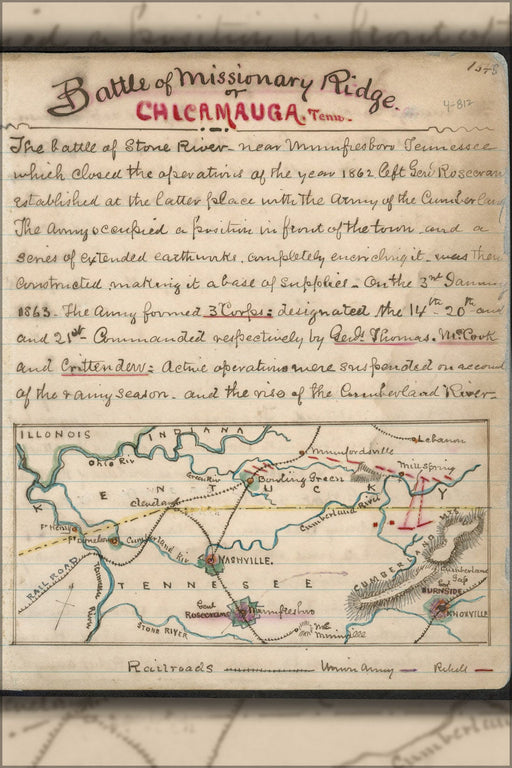 Battle of Missionary Ridge.
or
CHICAMAUGA. Tenn.
4-812
The battle of Stone River near Murufresboro Tennessee
which closed the operations of the year 1862 left Genl Rosecran
established at the latter place with the Army of the Cumberland
The Army occupied a position in front of the town, and a
series of extended earthworks, completely encircling it, was then
constructed, making it a base of supplies. On the 3rd January
1863. The Army formed 3 Corps: designated the 14th 20th and
and 21st Commanded respectively by Genls Thomas. McCook
and Crittenden: Active operations were suspended on account
of the rainy season. and the rise of the Cumberland River
ILLINOIS
INDIANA
Lebanon
Ohio Riv
Munfordsville
Green Riv
Bowling Green
Mill Spring
KENTUCKY
Cumberland River
Ft Henry
Ft Donelson
Cumberland Riv
NASHVILLE.
RAILROAD
Tennessee River
TENNESEE
CUMBERLAND MTS
Cumberland Gap
Genl BURNSIDE
KNOXVILLE
Genl Rosecrans
Murufresboro
STONE RIVER
Mc Minnville
Railroads
Union Army
Rebell